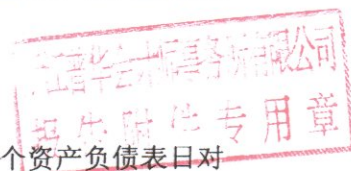 会计师事务所有限公司
报告附件专用章
个资产负债表日对